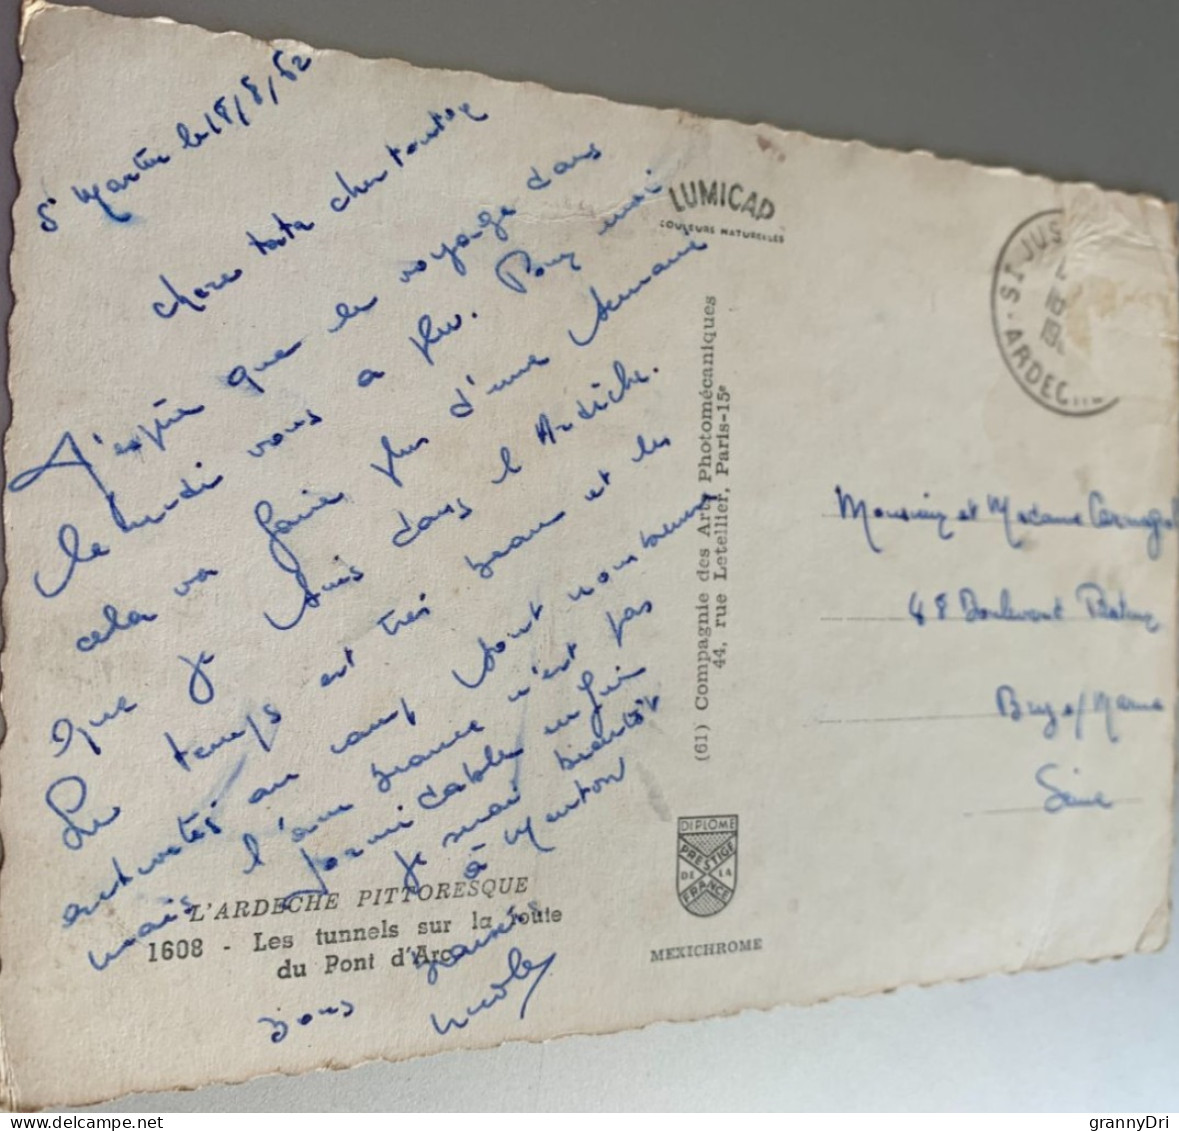 St Martin le 18/8/62
chere tata cher tonton
J'espère que le voyage dans
le midi vous a plu. Pour moi
cela va faire plus d'une semaine
que je suis dans l'Ardèche.
Le temps est très beau et les
au camp sont nombreuses
mais l'ambiance n'est pas
formidable enfin
je serai bientôt
à Menton
Gros baisers
Nicole
L'ARDECHE PITTORESQUE
1608 - Les tunnels sur la route
du Pont d'Arc
LUMICAP
COULEURS NATURELLES
(61) Compagnie des Arts Photomécaniques
44, rue Letellier, Paris-15e
DIPLOME
PRESTIGE
DE LA
FRANCE
MEXICHROME
ST JUS
ARDECHE
Monsieur et Madame
48 Boulevard
Bry s/ Marne
Seine
grannyDri